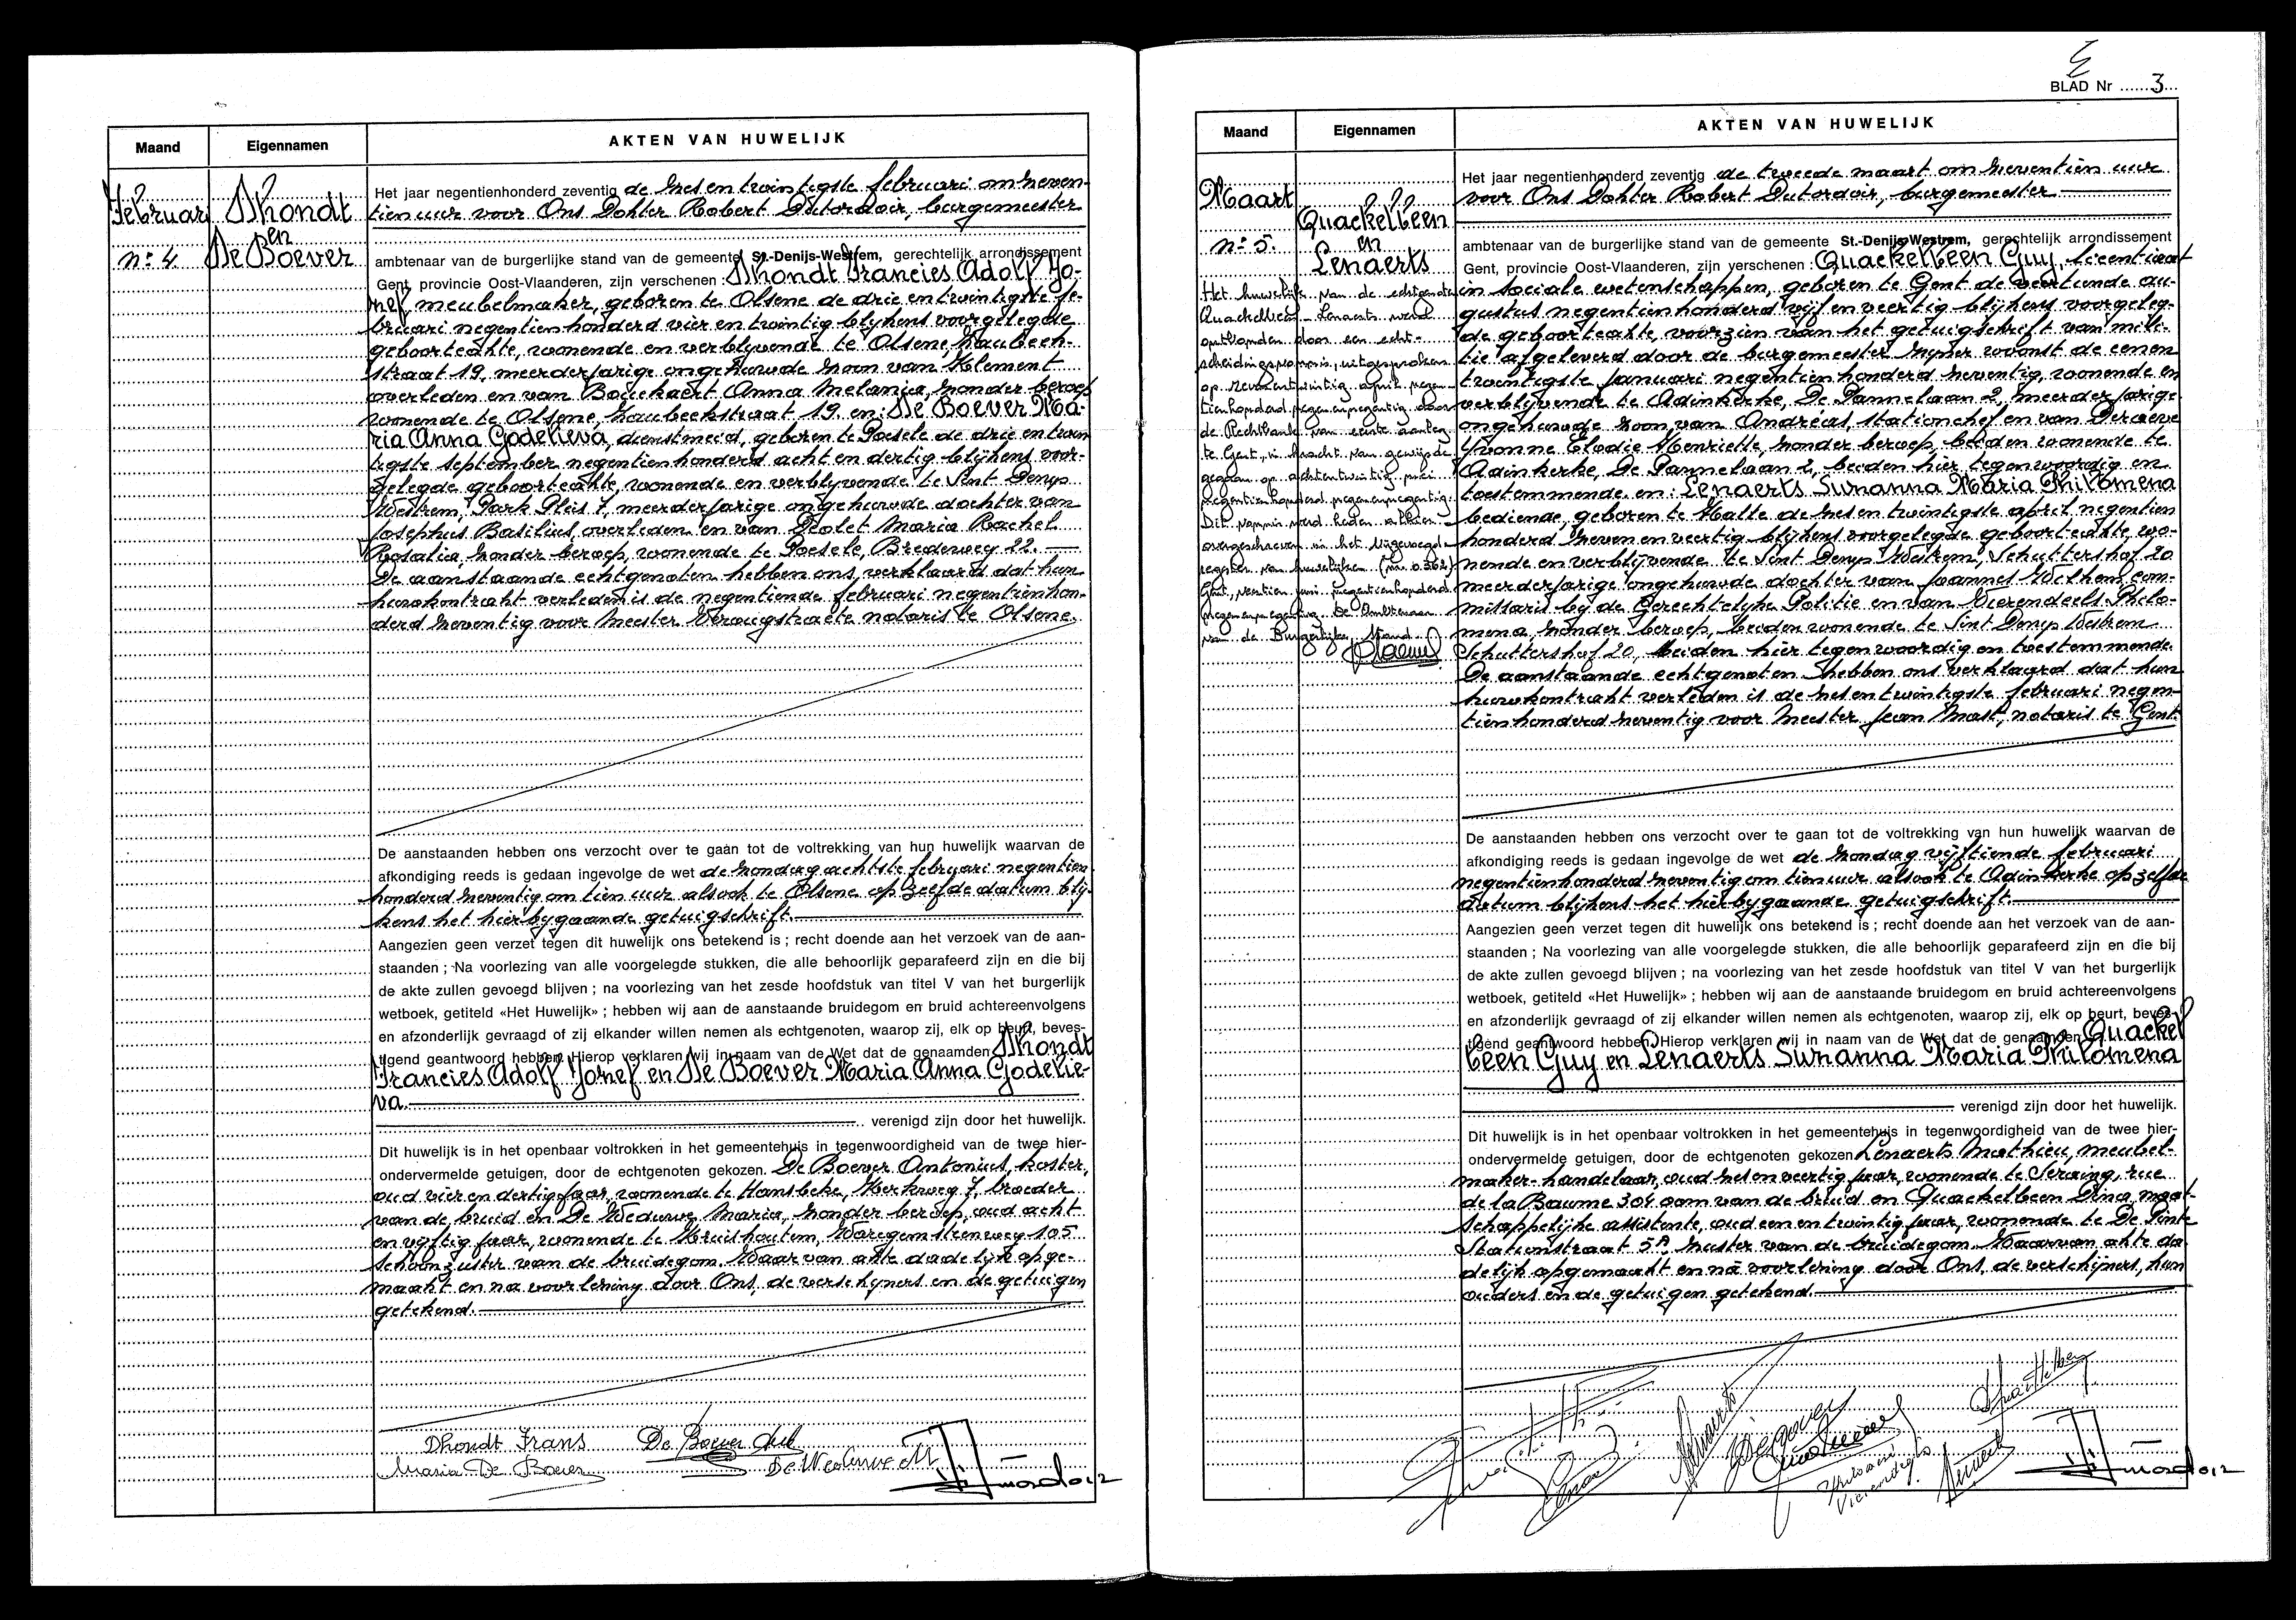 Maand
Eigennamen
AKTEN VAN HUWELIJK
Februari
Dhondt
en
De Boever
nr 4
Het jaar negentienhonderd zeventig de zesentwintigste februari om zeven-
tien uur voor Ons Dokter Robert Dutordoir, burgemeester
ambtenaar van de burgerlijke stand van de gemeente St.-Denijs-Westrem, gerechtelijk arrondissement
Gent, provincie Oost-Vlaanderen, zijn verschenen : Dhondt Francies Adolf Jo-
zef, meubelmaker, geboren te Olsene de drie en twintigste fe-
bruari negentienhonderd vier en twintig blijkens voorgelegde
geboorteakte, wonende en verblijvende te Olsene, Kaubeek-
straat 19, meerderjarige ongehuwde zoon van Klement
overleden en van Bouckaert Anna Melania, zonder beroep
wonende te Olsene, Kaubeekstraat 19 en: De Boever Ma-
ria Anna Godelieva, dienstmeid, geboren te Poesele de drie en twin
tigste september negentienhonderd acht en dertig blijkens voor-
gelegde geboorteakte, wonende en verblijvende te Sint Denys
Westrem, Park Pleis 7, meerderjarige ongehuwde dochter van
Josephus Basilius, overleden en van Stolet Maria Rachel
Rosalia, zonder beroep, wonende te Poesele, Bredeweg 22.
De aanstaande echtgenoten hebben ons verklaard dat hun
huwkontrakt verleden is de negentiende februari negentienhon-
derd zeventig voor Meester Veraugstraete notaris te Olsene.
De aanstaanden hebben ons verzocht over te gaan tot de voltrekking van hun huwelijk waarvan de
afkondiging reeds is gedaan ingevolge de wet de zondag achtste februari negentien
honderd zeventig om tien uur alsook te Olsene op zelfde datum blij-
kens het hierbijgaande getuigschrift.
Aangezien geen verzet tegen dit huwelijk ons betekend is ; recht doende aan het verzoek van de aan-
staanden ; Na voorlezing van alle voorgelegde stukken, die alle behoorlijk geparafeerd zijn en die bij
de akte zullen gevoegd blijven ; na voorlezing van het zesde hoofdstuk van titel V van het burgerlijk
wetboek, getiteld «Het Huwelijk» ; hebben wij aan de aanstaande bruidegom en bruid achtereenvolgens
en afzonderlijk gevraagd of zij elkander willen nemen als echtgenoten, waarop zij, elk op beurt, beves-
tigend geantwoord hebben. Hierop verklaren wij in naam van de Wet dat de genaamden Dhondt
Francies Adolf Jozef en De Boever Maria Anna Godelie-
va.
verenigd zijn door het huwelijk.
Dit huwelijk is in het openbaar voltrokken in het gemeentehuis in tegenwoordigheid van de twee hier-
ondervermelde getuigen, door de echtgenoten gekozen. De Boever Antonius, koster,
oud vier en dertig jaar, wonende te Hansbeke, Merkweg 7, broeder
van de bruid en De Weduwe Maria, zonder beroep, oud acht
en vijftig jaar, wonende te Kruishoutem, Waregemsteenweg 105
schoonzuster van de bruidegom. Waarvan akte dadelijk opge-
maakt en na voorlezing door Ons, de verschijners en de getuigen
getekend.
Dhondt Frans
De Boever
Maria De Boever
De Weduwe M
BLAD Nr 3
Maand
Eigennamen
AKTEN VAN HUWELIJK
Maart
Quackelbeen
nr 5.
en
Lenaerts
Het huwelijk van de echtgenoten
Quackelbeen - Lenaerts werd
ontbonden door een echt-
scheidingsvonnis, uitgesproken
op zevenentwintig april negen-
tienhonderd negenennegentig door
de Rechtbank van eerste aanleg
te Gent, in kracht van gewijsde
gegaan op achtentwintig mei
negentienhonderd negenennegentig.
Dit vonnis werd heden alhier
overgeschreven in het bijgevoegd
register van huwelijken (nr 0.562)
Gent, veertien juni negentienhonderd
negenennegentig. De Ambtenaar
van de Burgerlijke Stand.
Het jaar negentienhonderd zeventig de tweede maart om zeventien uur
voor Ons Dokter Robert Dutordoir, burgemeester
ambtenaar van de burgerlijke stand van de gemeente St.-Denijs-Westrem, gerechtelijk arrondissement
Gent, provincie Oost-Vlaanderen, zijn verschenen : Quackelbeen Guy, licentiaat
in sociale wetenschappen, geboren te Gent de veertiende au-
gustus negentienhonderd vijf en veertig blijkens voorgeleg-
de geboorteakte, voorzien van het getuigschrift van mili-
tie afgeleverd door de burgemeester zijner woonst de eenen
twintigste januari negentienhonderd zeventig, wonende en
verblijvende te Adinkerke, De Pannelaan 2, meerderjarige
ongehuwde zoon van Andréas, stationchef en van Deraeve
Yvonne Elodie Henriette, zonder beroep, beiden wonende te
Adinkerke, De Pannelaan 2, beiden hier tegenwoordig en
toestemmende en: Lenaerts Suzanna Maria Philomena
bediende, geboren te Halle de zesentwintigste april negentien
honderd zeven en veertig blijkens voorgelegde geboorteakte, wo-
nende en verblijvende te Sint Denys Westrem, Schuttershof 20
meerderjarige ongehuwde dochter van Joannes Wilhem com-
missaris bij de Gerechtelijke Politie en van Vierendeels Philo-
mena, zonder beroep, beiden wonende te Sint Denys Westrem
Schuttershof 20, beiden hier tegenwoordig en toestemmende.
De aanstaande echtgenoten hebben ons verklaard dat hun
huwkontrakt verleden is de zesentwintigste februari negen-
tienhonderd zeventig voor Meester Jean Mast, notaris te Gent.
De aanstaanden hebben ons verzocht over te gaan tot de voltrekking van hun huwelijk waarvan de
afkondiging reeds is gedaan ingevolge de wet de zondag vijftiende februari
negentienhonderd zeventig om tien uur alsook te Adinkerke op zelfde
datum blijkens het hierbijgaande getuigschrift.
Aangezien geen verzet tegen dit huwelijk ons betekend is ; recht doende aan het verzoek van de aan-
staanden ; Na voorlezing van alle voorgelegde stukken, die alle behoorlijk geparafeerd zijn en die bij
de akte zullen gevoegd blijven ; na voorlezing van het zesde hoofdstuk van titel V van het burgerlijk
wetboek, getiteld «Het Huwelijk» ; hebben wij aan de aanstaande bruidegom en bruid achtereenvolgens
en afzonderlijk gevraagd of zij elkander willen nemen als echtgenoten, waarop zij, elk op beurt, beves-
tigend geantwoord hebben. Hierop verklaren wij in naam van de Wet dat de genaamden Quackel
been Guy en Lenaerts Suzanna Maria Philomena
verenigd zijn door het huwelijk.
Dit huwelijk is in het openbaar voltrokken in het gemeentehuis in tegenwoordigheid van de twee hier-
ondervermelde getuigen, door de echtgenoten gekozen Lenaerts Mathieu, meubel-
maker-handelaar, oud zesenveertig jaar, wonende te Seraing, rue
de la Baume 304 oom van de bruid en Quackelbeen Dina, maat-
schappelijke assistente, oud een en twintig jaar, wonende te De Pinte
Stationstraat 5A, zuster van de bruidegom. Waarvan akte da-
delijk opgemaakt en na voorlezing door Ons, de verschijners, hun
ouders en de getuigen getekend.